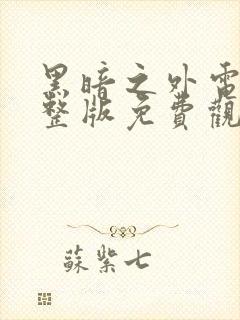 黑暗之外電
整版免費觀
蘇紫七